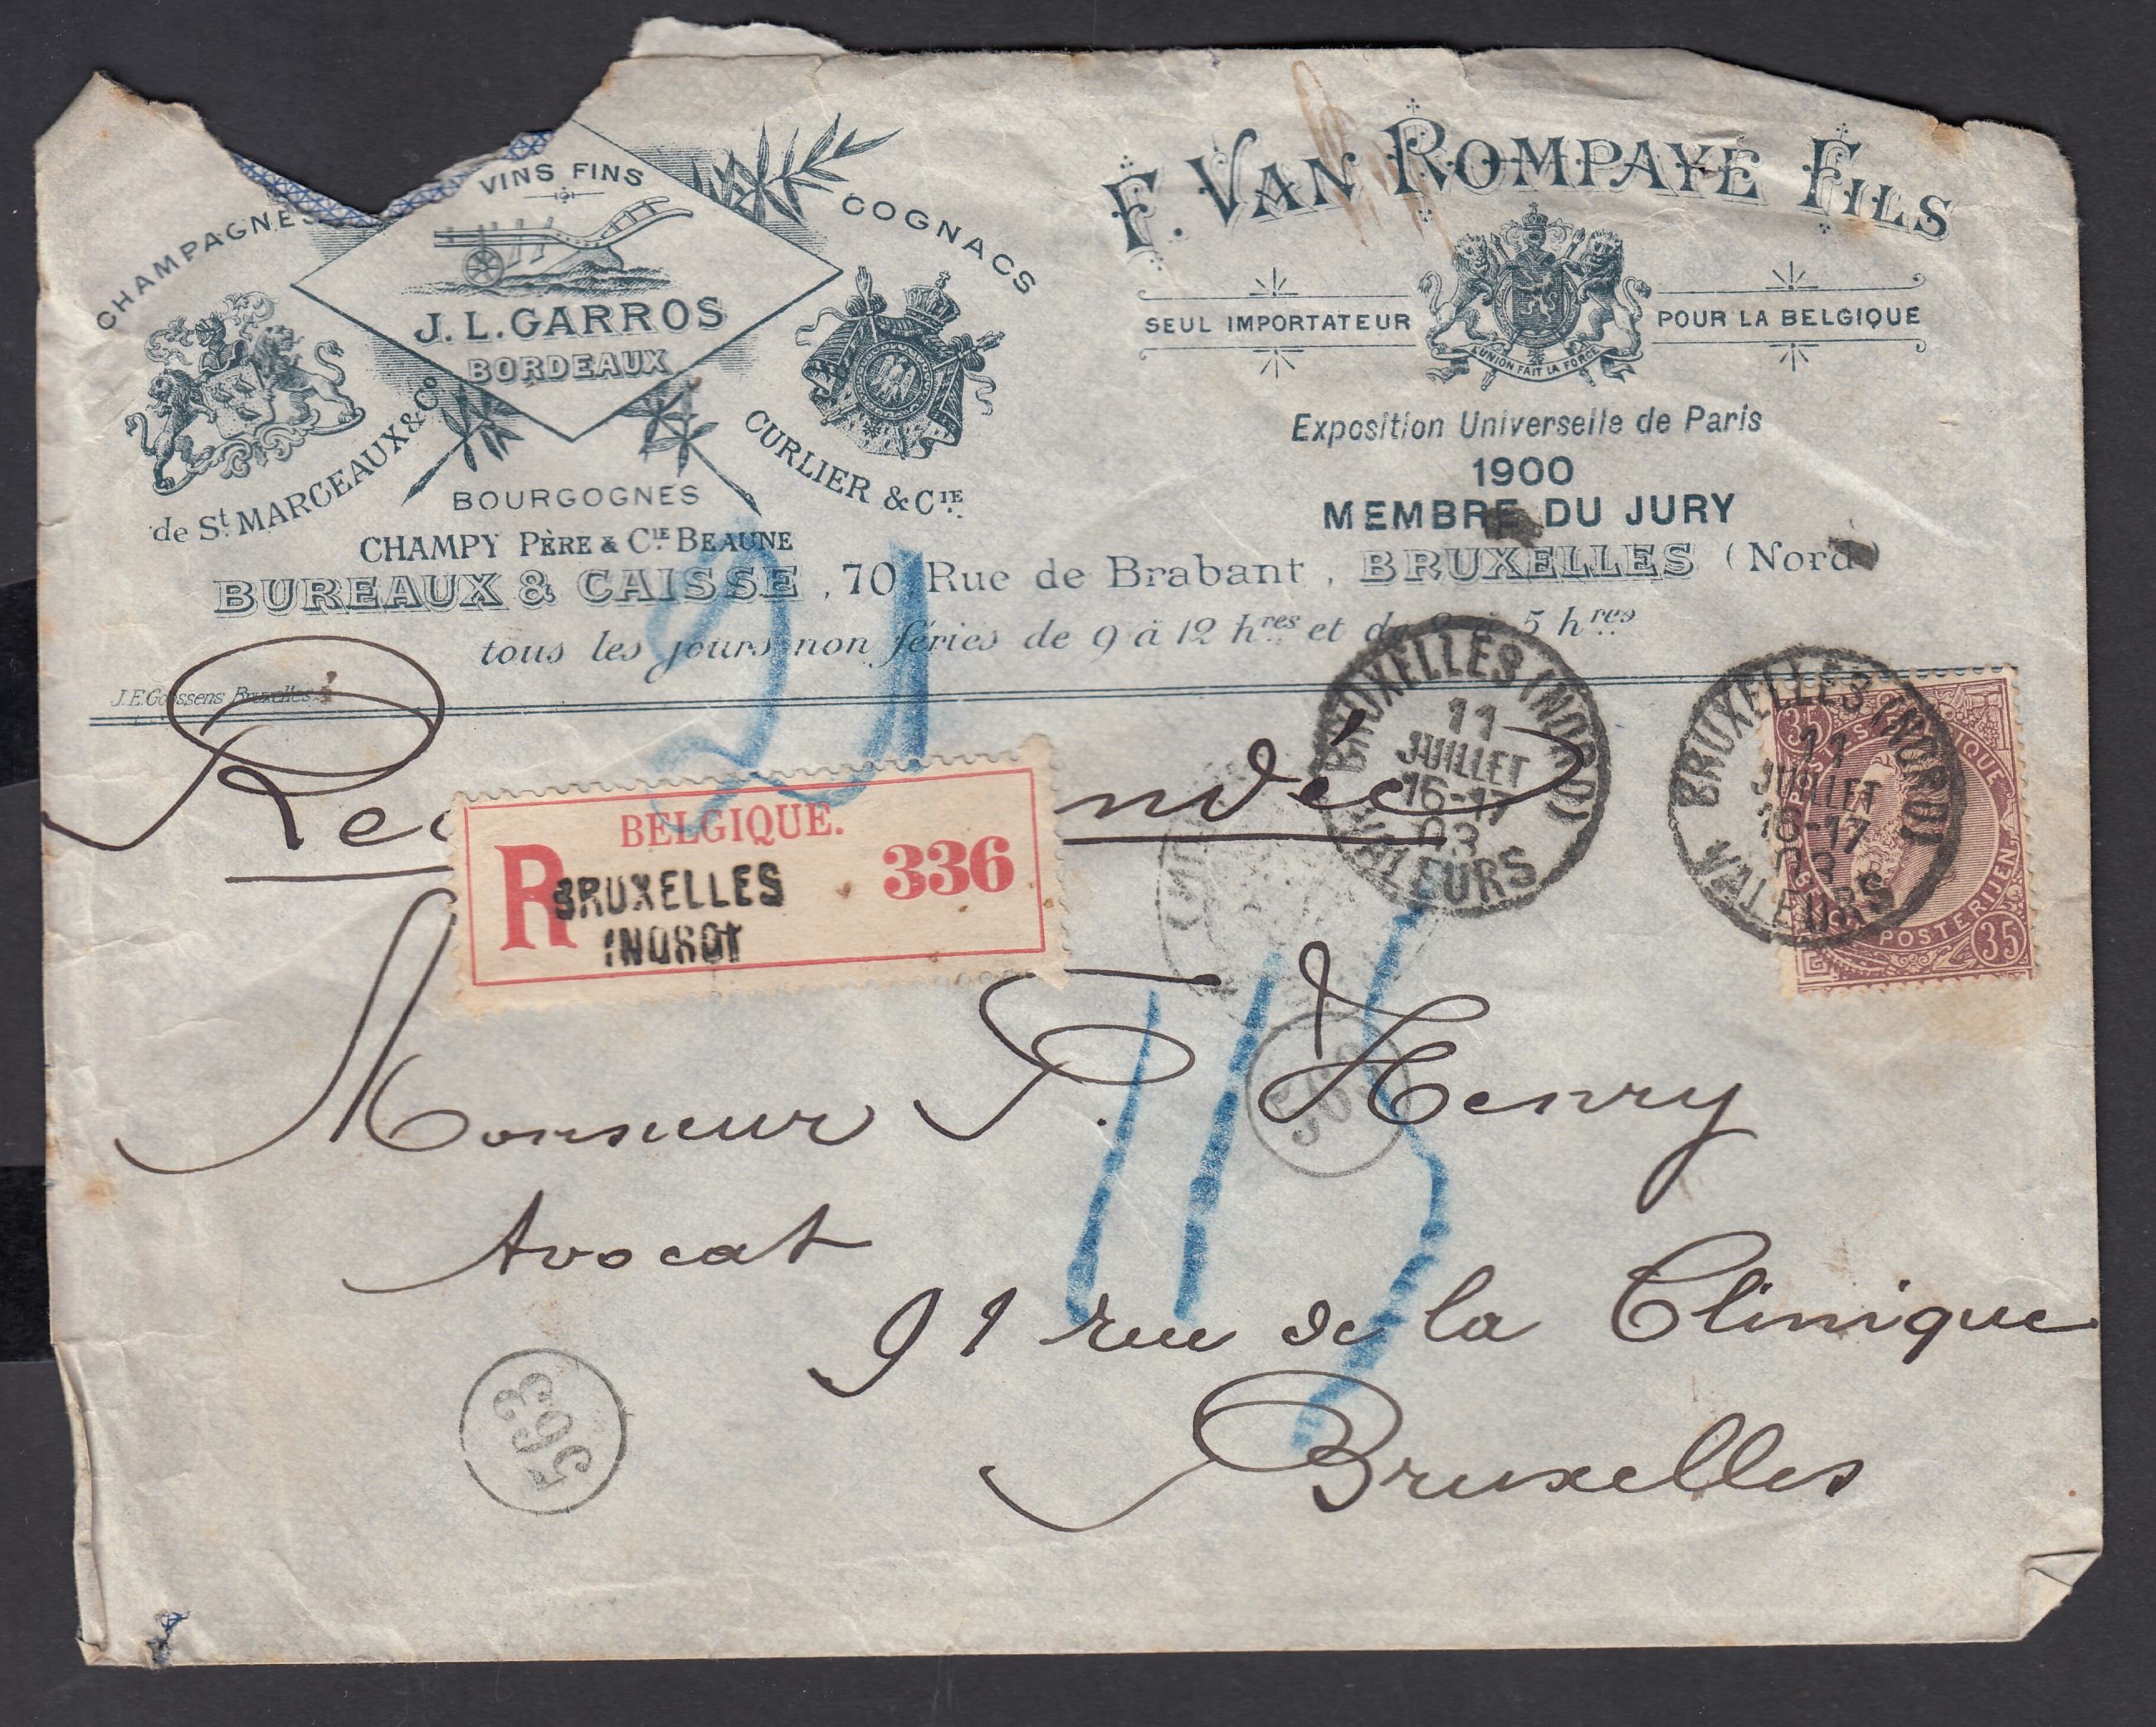 CHAMPAGNES
de St MARCEAUX & Co
VINS FINS
J. L. GARROS
BORDEAUX
COGNACS
CURLIER & CIE
BOURGOGNES
CHAMPY PÈRE & CIE BEAUNE
F. VAN ROMPAYE FILS
SEUL IMPORTATEUR POUR LA BELGIQUE
L'UNION FAIT LA FORCE
Exposition Universelle de Paris
1900
MEMBRE DU JURY
BUREAUX & CAISSE, 70 Rue de Brabant, BRUXELLES (Nord)
tous les jours non fériés de 9 à 12 hres et de 2 à 5 hres
J.E. Goossens Bruxelles
21
BELGIQUE.
R
336
BRUXELLES
(NORD)
BRUXELLES (NORD)
11
JUILLET
16-17
03
VALEURS
BRUXELLES (NORD)
11
JUILLET
16-17
03
VALEURS
35
POSTERIJEN
35
113
Monsieur F. Henry
Avocat
91 rue de la Clinique
Bruxelles